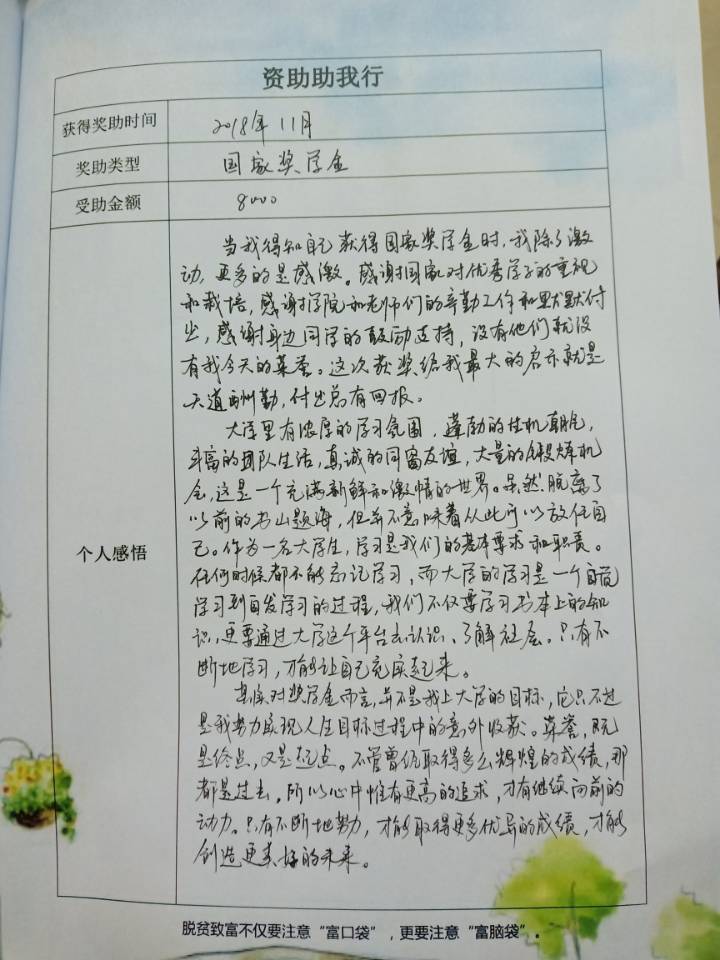 资助助我行
获得奖助时间 2018年11月
奖助类型 国家奖学金
受助金额 8000
个人感悟
当我得知自己获得国家奖学金时,我除了激
动,更多的是感激。感谢国家对优秀学子的重视
和栽培,感谢学院和老师们的辛勤工作和默默付
出,感谢身边同学的鼓励支持,没有他们就没
有我今天的荣誉。这次获奖给我最大的启示就是
天道酬勤,付出总有回报。
大学里有浓厚的学习氛围,蓬勃的生机朝气,
丰富的团队生活,真诚的同窗友谊,大量的锻炼机
会,这是一个充满新鲜和激情的世界。虽然脱离了
以前的书山题海,但并不意味着从此可以放任自
己。作为一名大学生,学习是我们的基本要求和职责。
任何时候都不能忘记学习,而大学的学习是一个自觉
学习到自发学习的过程,我们不仅要学习书本上的知
识,更要通过大学这个平台去认识、了解社会。只有不
断地学习,才能让自己充实起来。
其实对奖学金而言,并不是我上大学的目标,它只不过
是我努力实现人生目标过程中的意外收获。荣誉,既
是终点,又是起点。不管曾经取得多么辉煌的成绩,那
都是过去。所以心中惟有更高的追求,才有继续向前的
动力。只有不断地努力,才能取得更多优异的成绩,才能
创造更美好的未来。
脱贫致富不仅要注意“富口袋”,更要注意“富脑袋”。